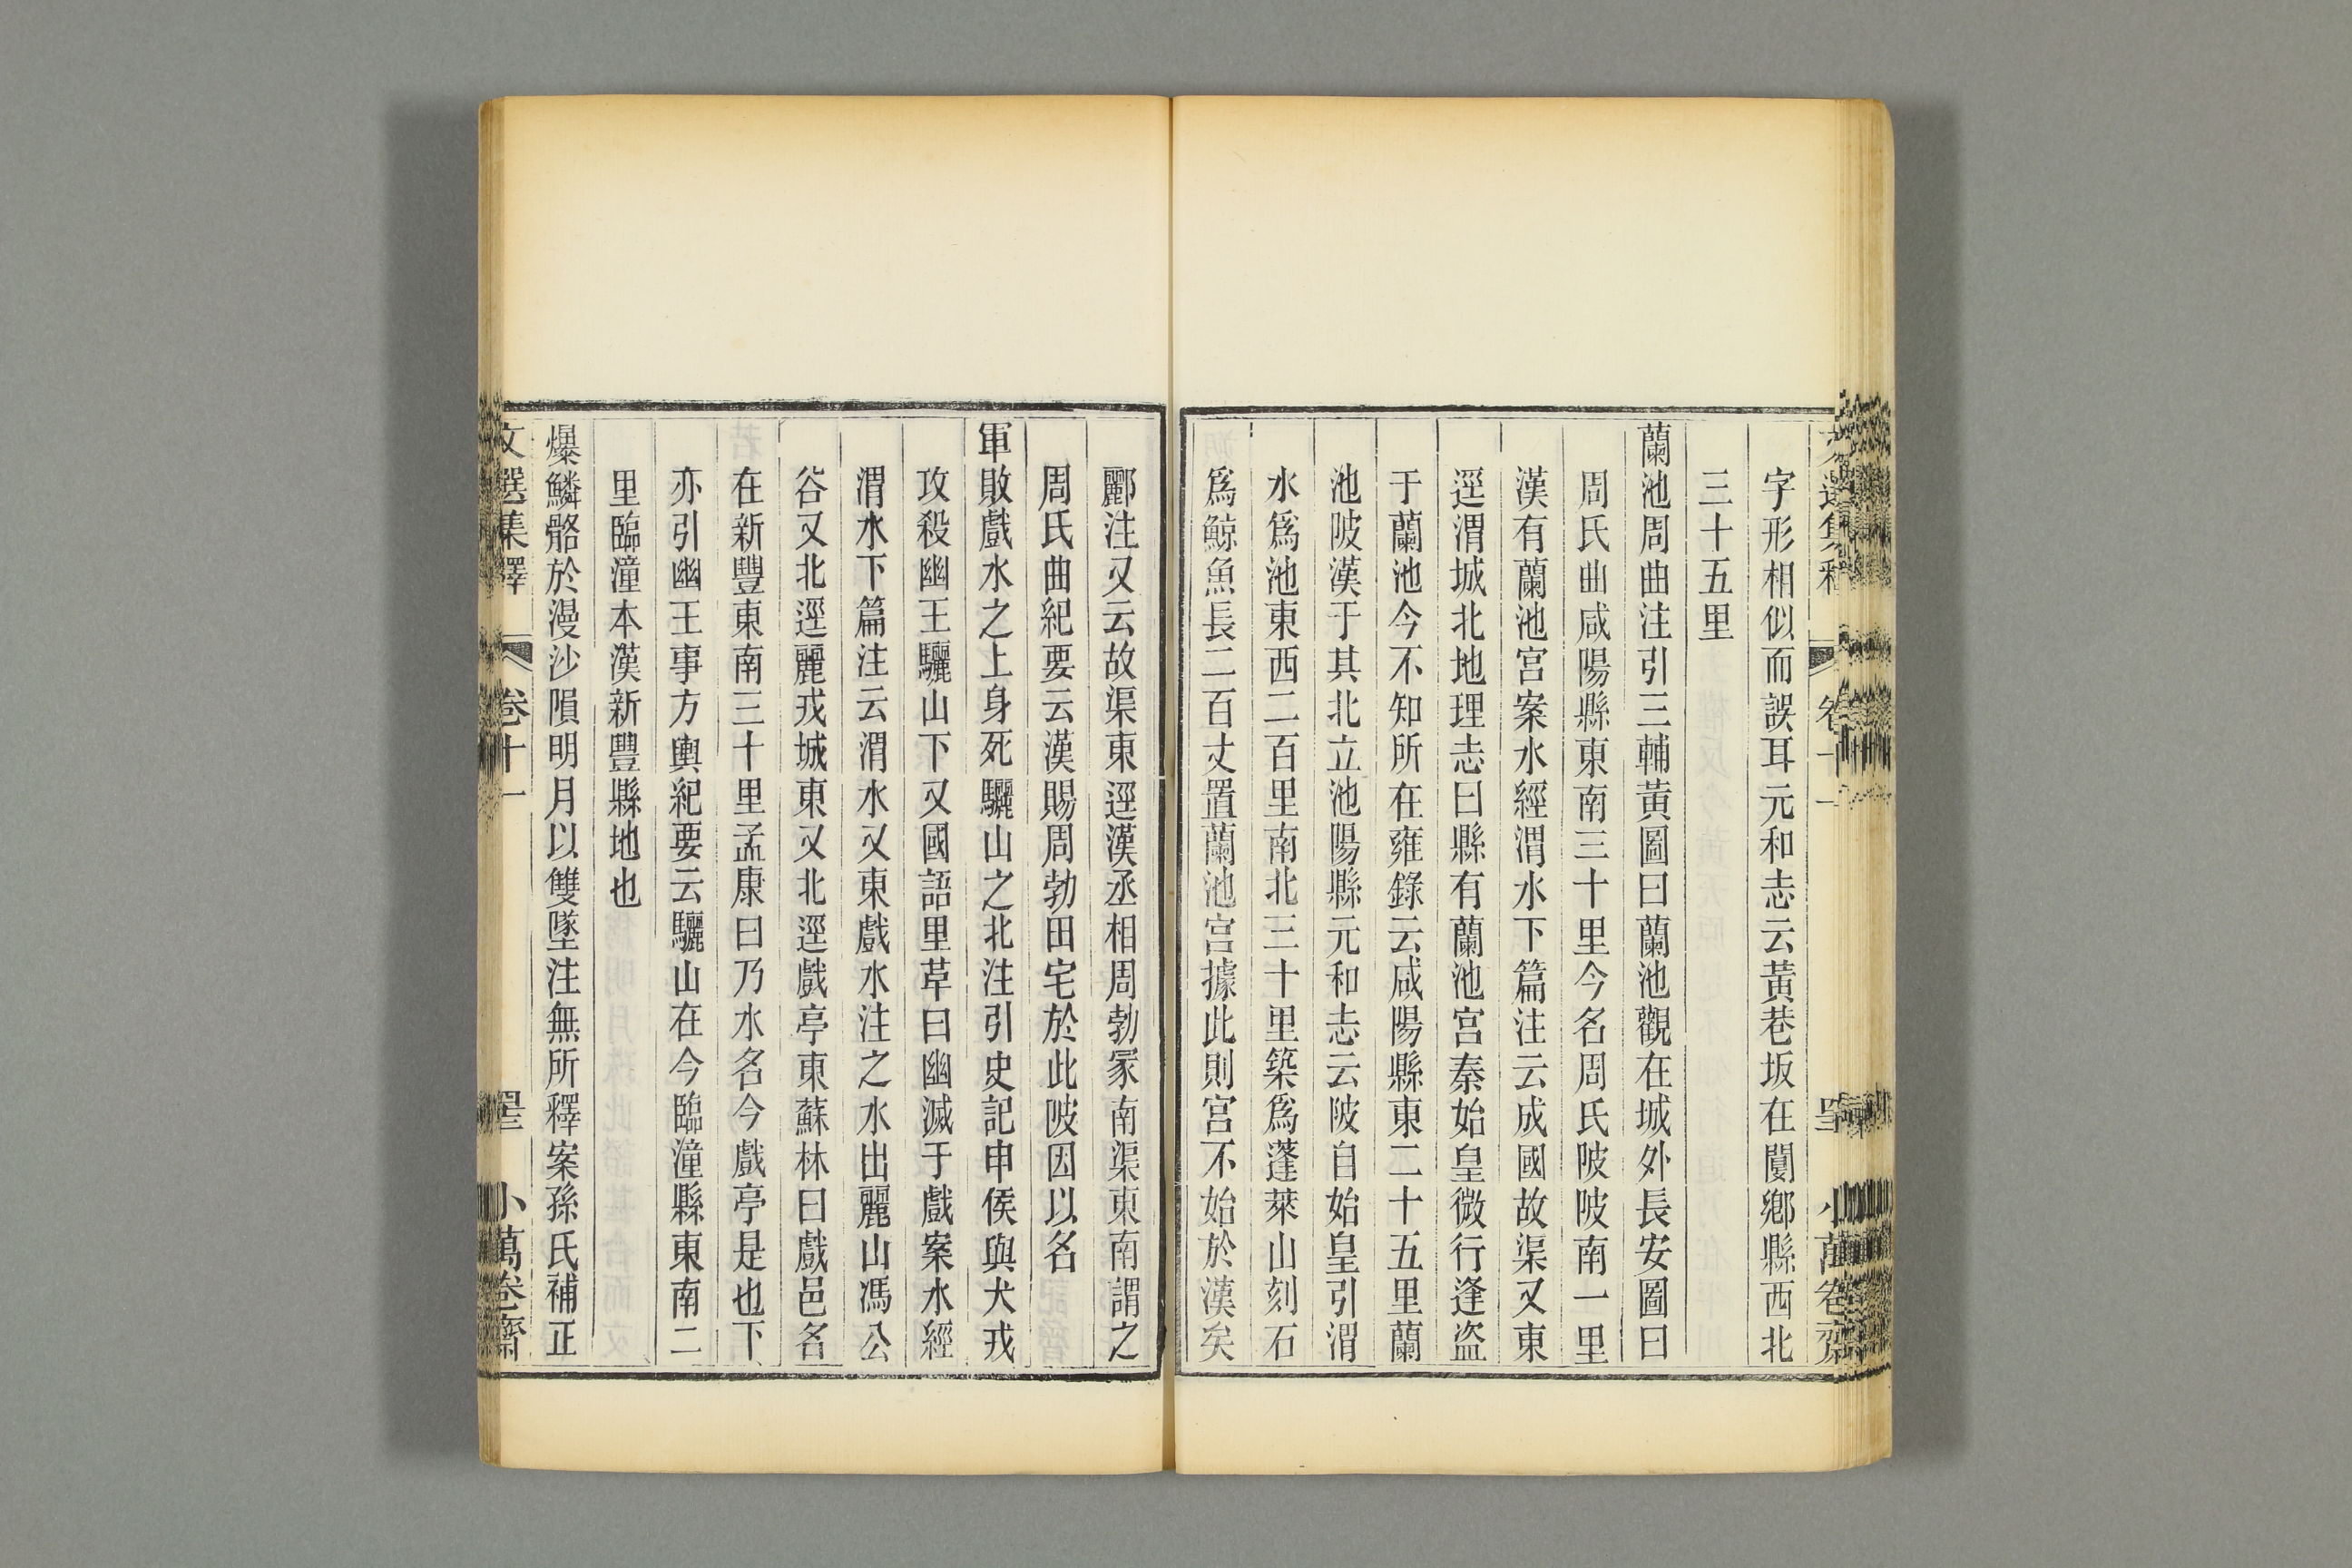 字形相似而誤耳元和志云黃巷坂在閿鄉縣西北
三十五里
蘭池周曲注引三輔黃圖曰蘭池觀在城外長安圖曰
周氏曲咸陽縣東南三十里今名周氏陂陂南一里
漢有蘭池宮案水經渭水下篇注云成國故渠又東
逕渭城北地理志曰縣有蘭池宮秦始皇微行逢盜
于蘭池今不知所在雍錄云咸陽縣東二十五里蘭
池陂漢于其北立池陽縣元和志云陂自始皇引渭
水爲池東西二百里南北三十里築爲蓬萊山刻石
爲鯨魚長二百丈置蘭池宮據此則宮不始於漢矣
酈注又云故渠東逕漢丞相周勃冢南渠東南謂之
周氏曲紀要云漢賜周勃田宅於此陂因以名
軍敗戲水之上身死驪山之北注引史記申侯與犬戎
攻殺幽王驪山下又國語里革曰幽滅于戲案水經
渭水下篇注云渭水又東戲水注之水出麗山馮公
谷又北逕麗戎城東又北逕戲亭東蘇林曰戲邑名
在新豐東南三十里孟康曰乃水名今戲亭是也下
亦引幽王事方輿紀要云驪山在今臨潼縣東南二
里臨潼本漢新豐縣地也
爆鱗骼於漫沙隕明月以雙墜注無所釋案孫氏補正
文選集釋 卷十一 小萬卷齋